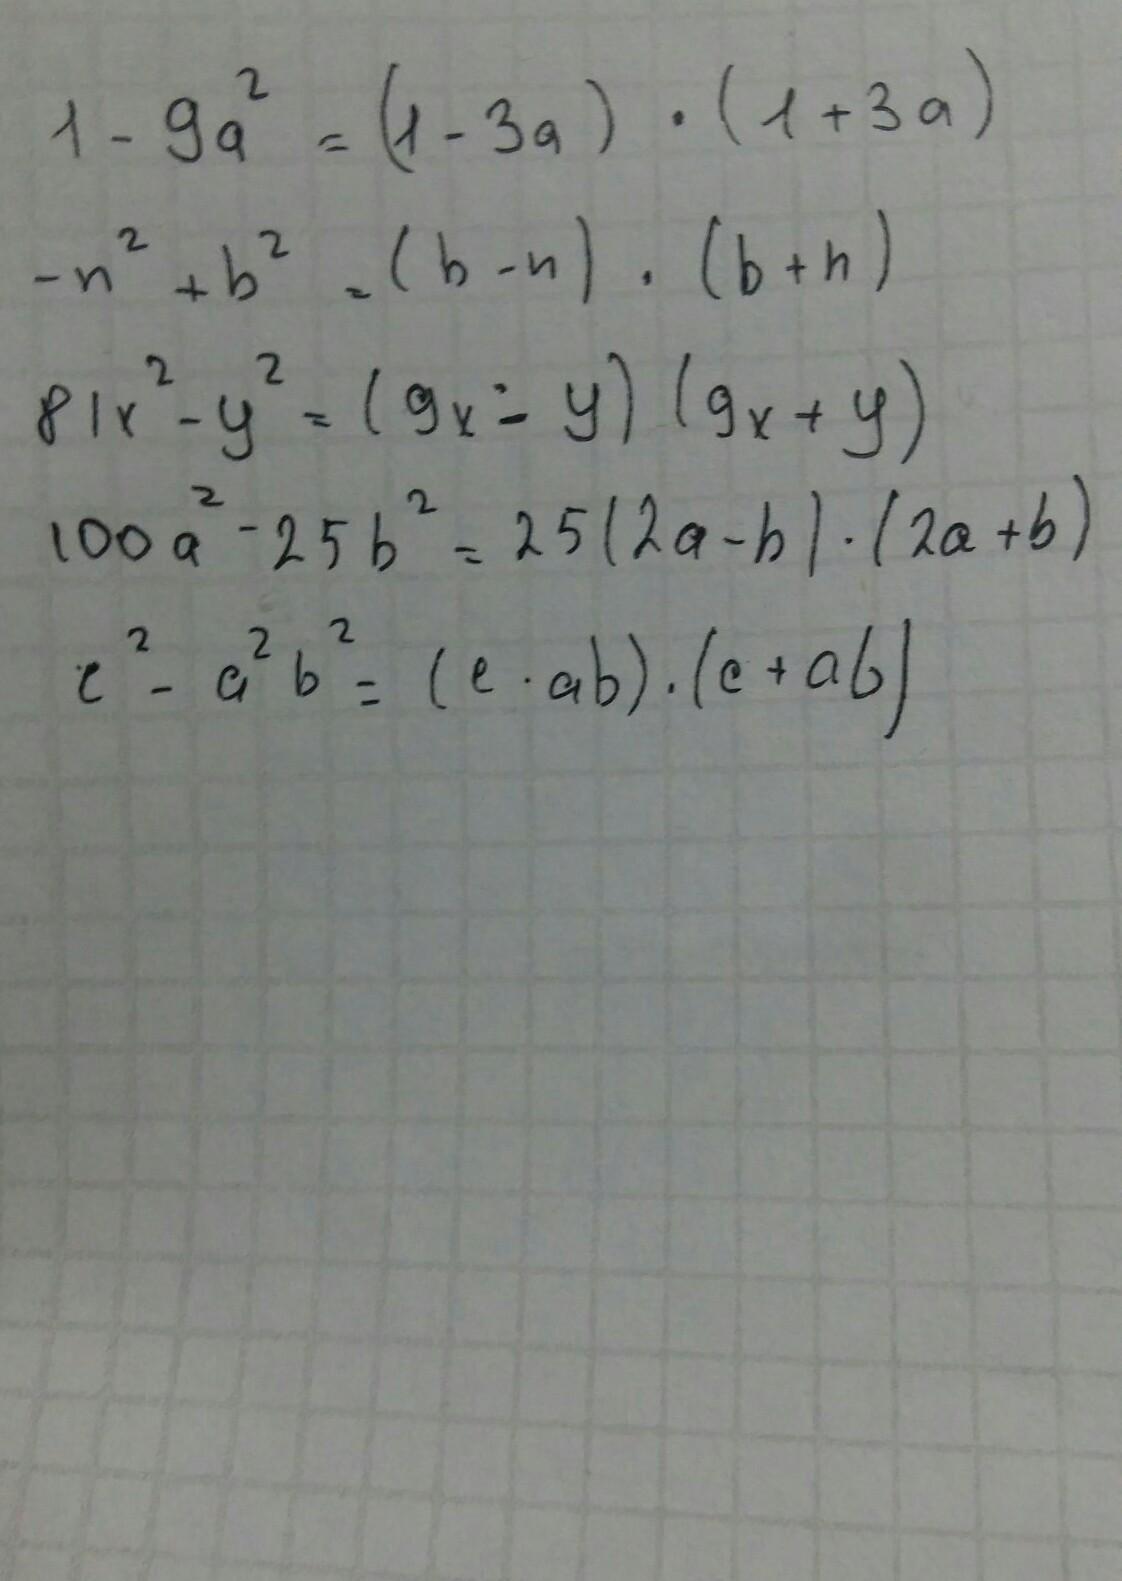 1 - 9a² = (1 - 3a) · (1 + 3a)
-n² + b² = (b - n) · (b + n)
81x² - y² = (9x - y) (9x + y)
100a² - 25b² = 25(2a - b) · (2a + b)
c² - a²b² = (c · ab) · (c + ab)